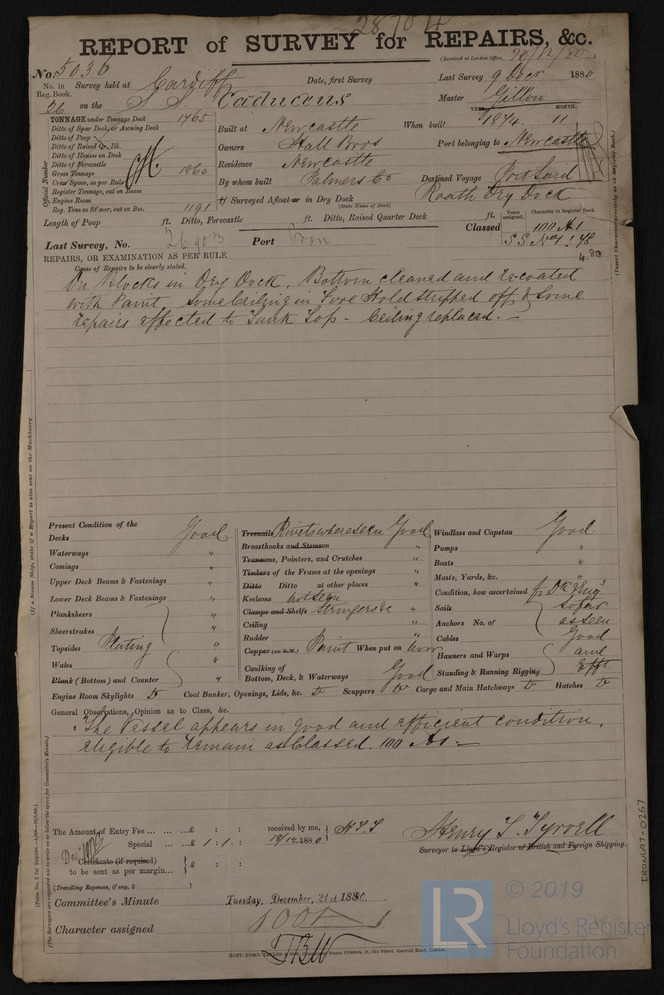 REPORT of SURVEY for REPAIRS, &c.
(Received at London Office, 20/12/80
No. 5036
No. in Reg. Book. Survey held at Cardiff Date, first Survey Last Survey 9 Decr 1880
56 on the S.S. Caducens Master Gitton
TONNAGE under Tonnage Deck 1765
Ditto of Spar Deck, or Awning Deck
Ditto of Poop
Ditto of Raised Qr. Dk.
Ditto of Houses on Deck
Ditto of Forecastle
Gross Tonnage 1860
Crew Space, as per Rule
Register Tonnage, cut on Beam
Engine Room
Reg. Tons as Steamer, cut on Bm. 1191
Official Number
Built at Newcastle When built YEAR. 1874 MONTH. 11
Owners Hall Bros Port belonging to Newcastle
Residence Newcastle
By whom built Palmers Co Destined Voyage Port Said
If Surveyed Afloat or in Dry Dock Roath Dry Dock
(State Name of Dock)
Length of Poop ft. Ditto, Forecastle ft. Ditto, Raised Quarter Deck ft.
Years assigned. Character in Register Book.
Classed 100 A1
S.S. No 1. 78
4.80
Last Survey, No. 26903 Port Iron
REPAIRS, OR EXAMINATION AS PER RULE
Cause of Repairs to be clearly stated.
On Blocks in Dry Dock. Bottom cleaned and recoated
with Paint, Some Ceiling in Fore Hold stripped off & Some
repairs effected to Tank Top - Ceiling replaced. —
Present Condition of the
Decks Good
Waterways "
Comings "
Upper Deck Beams & Fastenings "
Lower Deck Beams & Fastenings "
Planksheers "
Sheerstrakes "
Topsides Plating "
Wales "
Plank (Bottom) and Counter "
Treenails Rivets where seen Good
Breasthooks and Stemson "
Transoms, Pointers, and Crutches "
Timbers of the Frame at the openings "
Ditto Ditto at other places "
Keelsons not seen
Clamps and Shelfs Stringers &c "
Ceiling "
Rudder "
Copper (or Y.M.) Paint When put on now
Caulking of
Bottom, Deck, & Waterways Good
Windlass and Capstan Good
Pumps "
Boats "
Masts, Yards, &c. "
Condition, how ascertained fr Dk & Rig
Sails so far
Anchors No. of as seen
Cables Good
Hawsers and Warps and
Standing & Running Rigging Efft
Engine Room Skylights Do Coal Bunker, Openings, Lids, &c. Do Scuppers Do Cargo and Main Hatchways Do Hatches Do
General Observations, Opinion as to Class, &c.
The Vessel appears in good and efficient condition,
eligible to remain as Classed. 100 A1 —
The Amount of Entry Fee ... ... £ : : received by me,
Special ... ... £ 1 : 1 : 13/12 1880 H S T
Certificate (if required)
to be sent as per margin... £ : :
(Travelling Expenses, if any, £ )
Henry S. Tyrrell
Surveyor to Lloyd's Register of British and Foreign Shipping.
Committee's Minute Tuesday, December, 21st 1880.
Character assigned 100 A 1
IRON447-0267
© 2019
LR
Lloyd's Register
Foundation